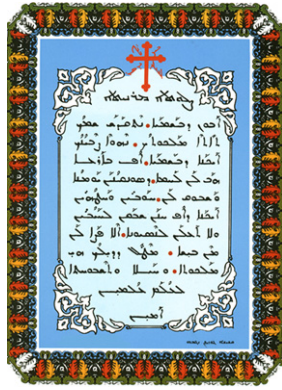 ܨܠܘܬܐ ܡܪܢܝܬܐ
ܐܒܘܢ ܕܒܫܡܝܐ. ܢܬܩܕܫ ܫܡܟ
ܬܐܬܐ ܡܠܟܘܬܟ. ܢܗܘܐ ܨܒܝܢܟ
ܐܝܟܢܐ ܕܒܫܡܝܐ. ܐܦ ܒܐܪܥܐ
ܗܒ ܠܢ ܠܚܡܐ ܕܣܘܢܩܢܢ ܝܘܡܢܐ
ܘܫܒܘܩ ܠܢ. ܚܘܒܝܢ ܘܚܛܗܝܢ
ܐܝܟܢܐ ܕܐܦ ܚܢܢ ܫܒܩܢ ܠܚܝܒܝܢ
ܘܠܐ ܬܥܠܢ ܠܢܣܝܘܢܐ. ܐܠܐ ܦܨܐ ܠܢ
ܡܢ ܒܝܫܐ. ܡܛܠ ܕܕܝܠܟ ܗܝ
ܡܠܟܘܬܐ. ܘܚܝܠܐ ܘܬܫܒܘܚܬܐ
ܠܥܠܡ ܥܠܡܝܢ
ܐܡܝܢ